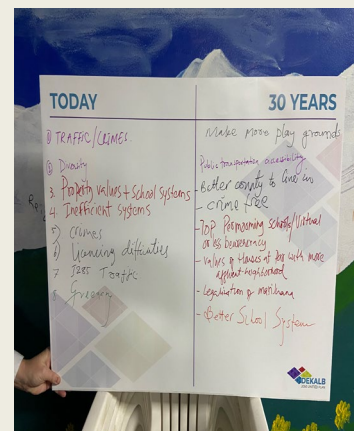 TODAY
① TRAFFIC/CRIMES.
② Diversity
3. Property values + School systems
4. Inefficient Systems
5) crimes
6) licencing dificulties
7 I285 Traffic
8
30 YEARS
Make more play grounds
Public transportation accessibility
- Better county to live in
- crime free
- Top Performing schools/Virtual
or less beuracracy
- values of Houses at Par with more
affluent neighborhood
- Legalization of marihuana
- Better School System
DEKALB